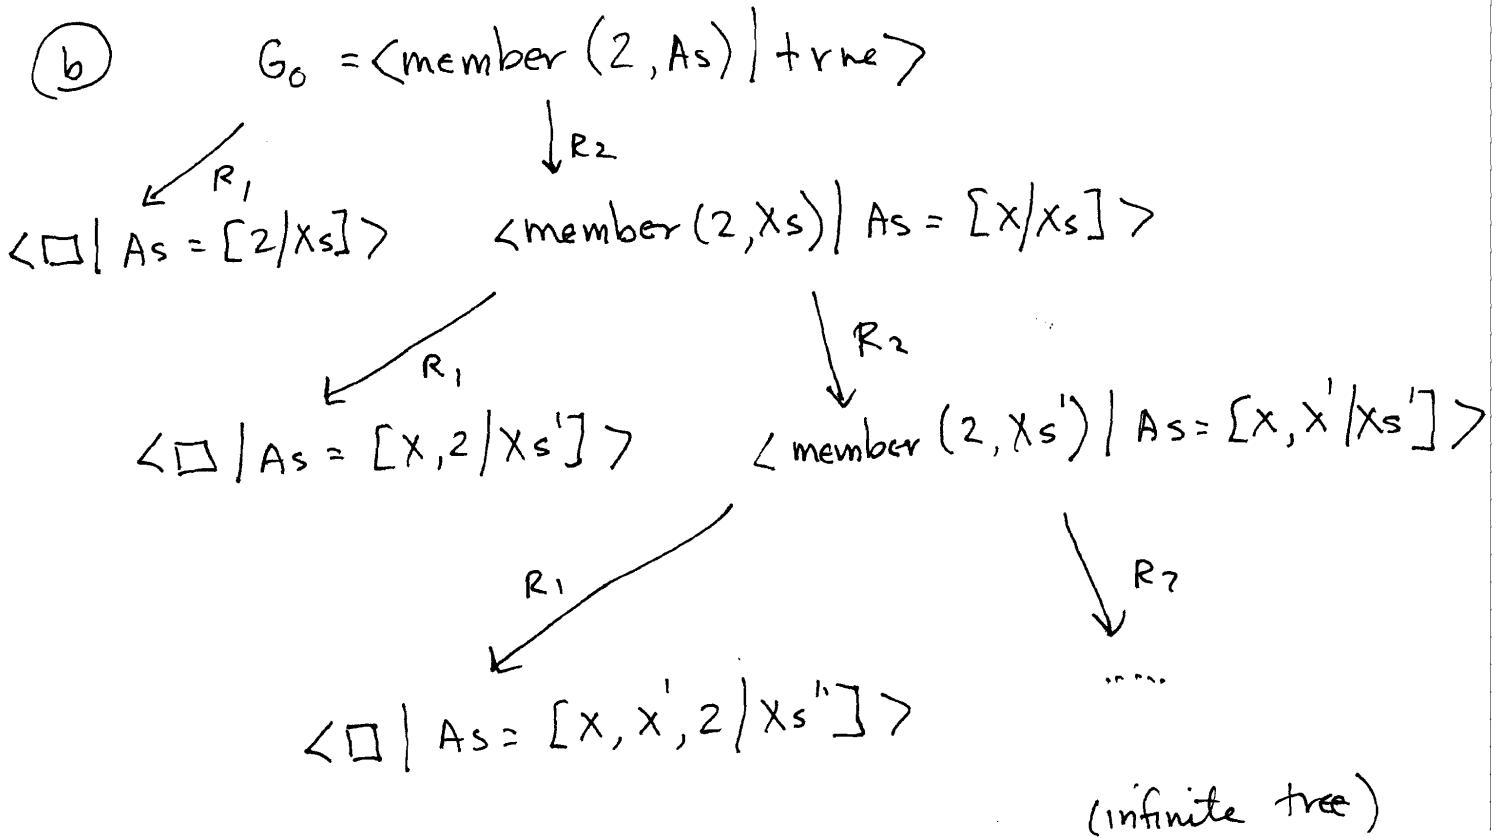 b G₀ = <member (2, As) | true>
R₂
R₁
<□ | As = [2|Xs]> <member (2, Xs) | As = [X|Xs]>
R₂
R₁
<□ | As = [X,2|Xs']> <member (2, Xs') | As = [X,X'|Xs']>
R₁ R₂
......
<□ | As = [X, X', 2 | Xs'']>
(infinite tree)